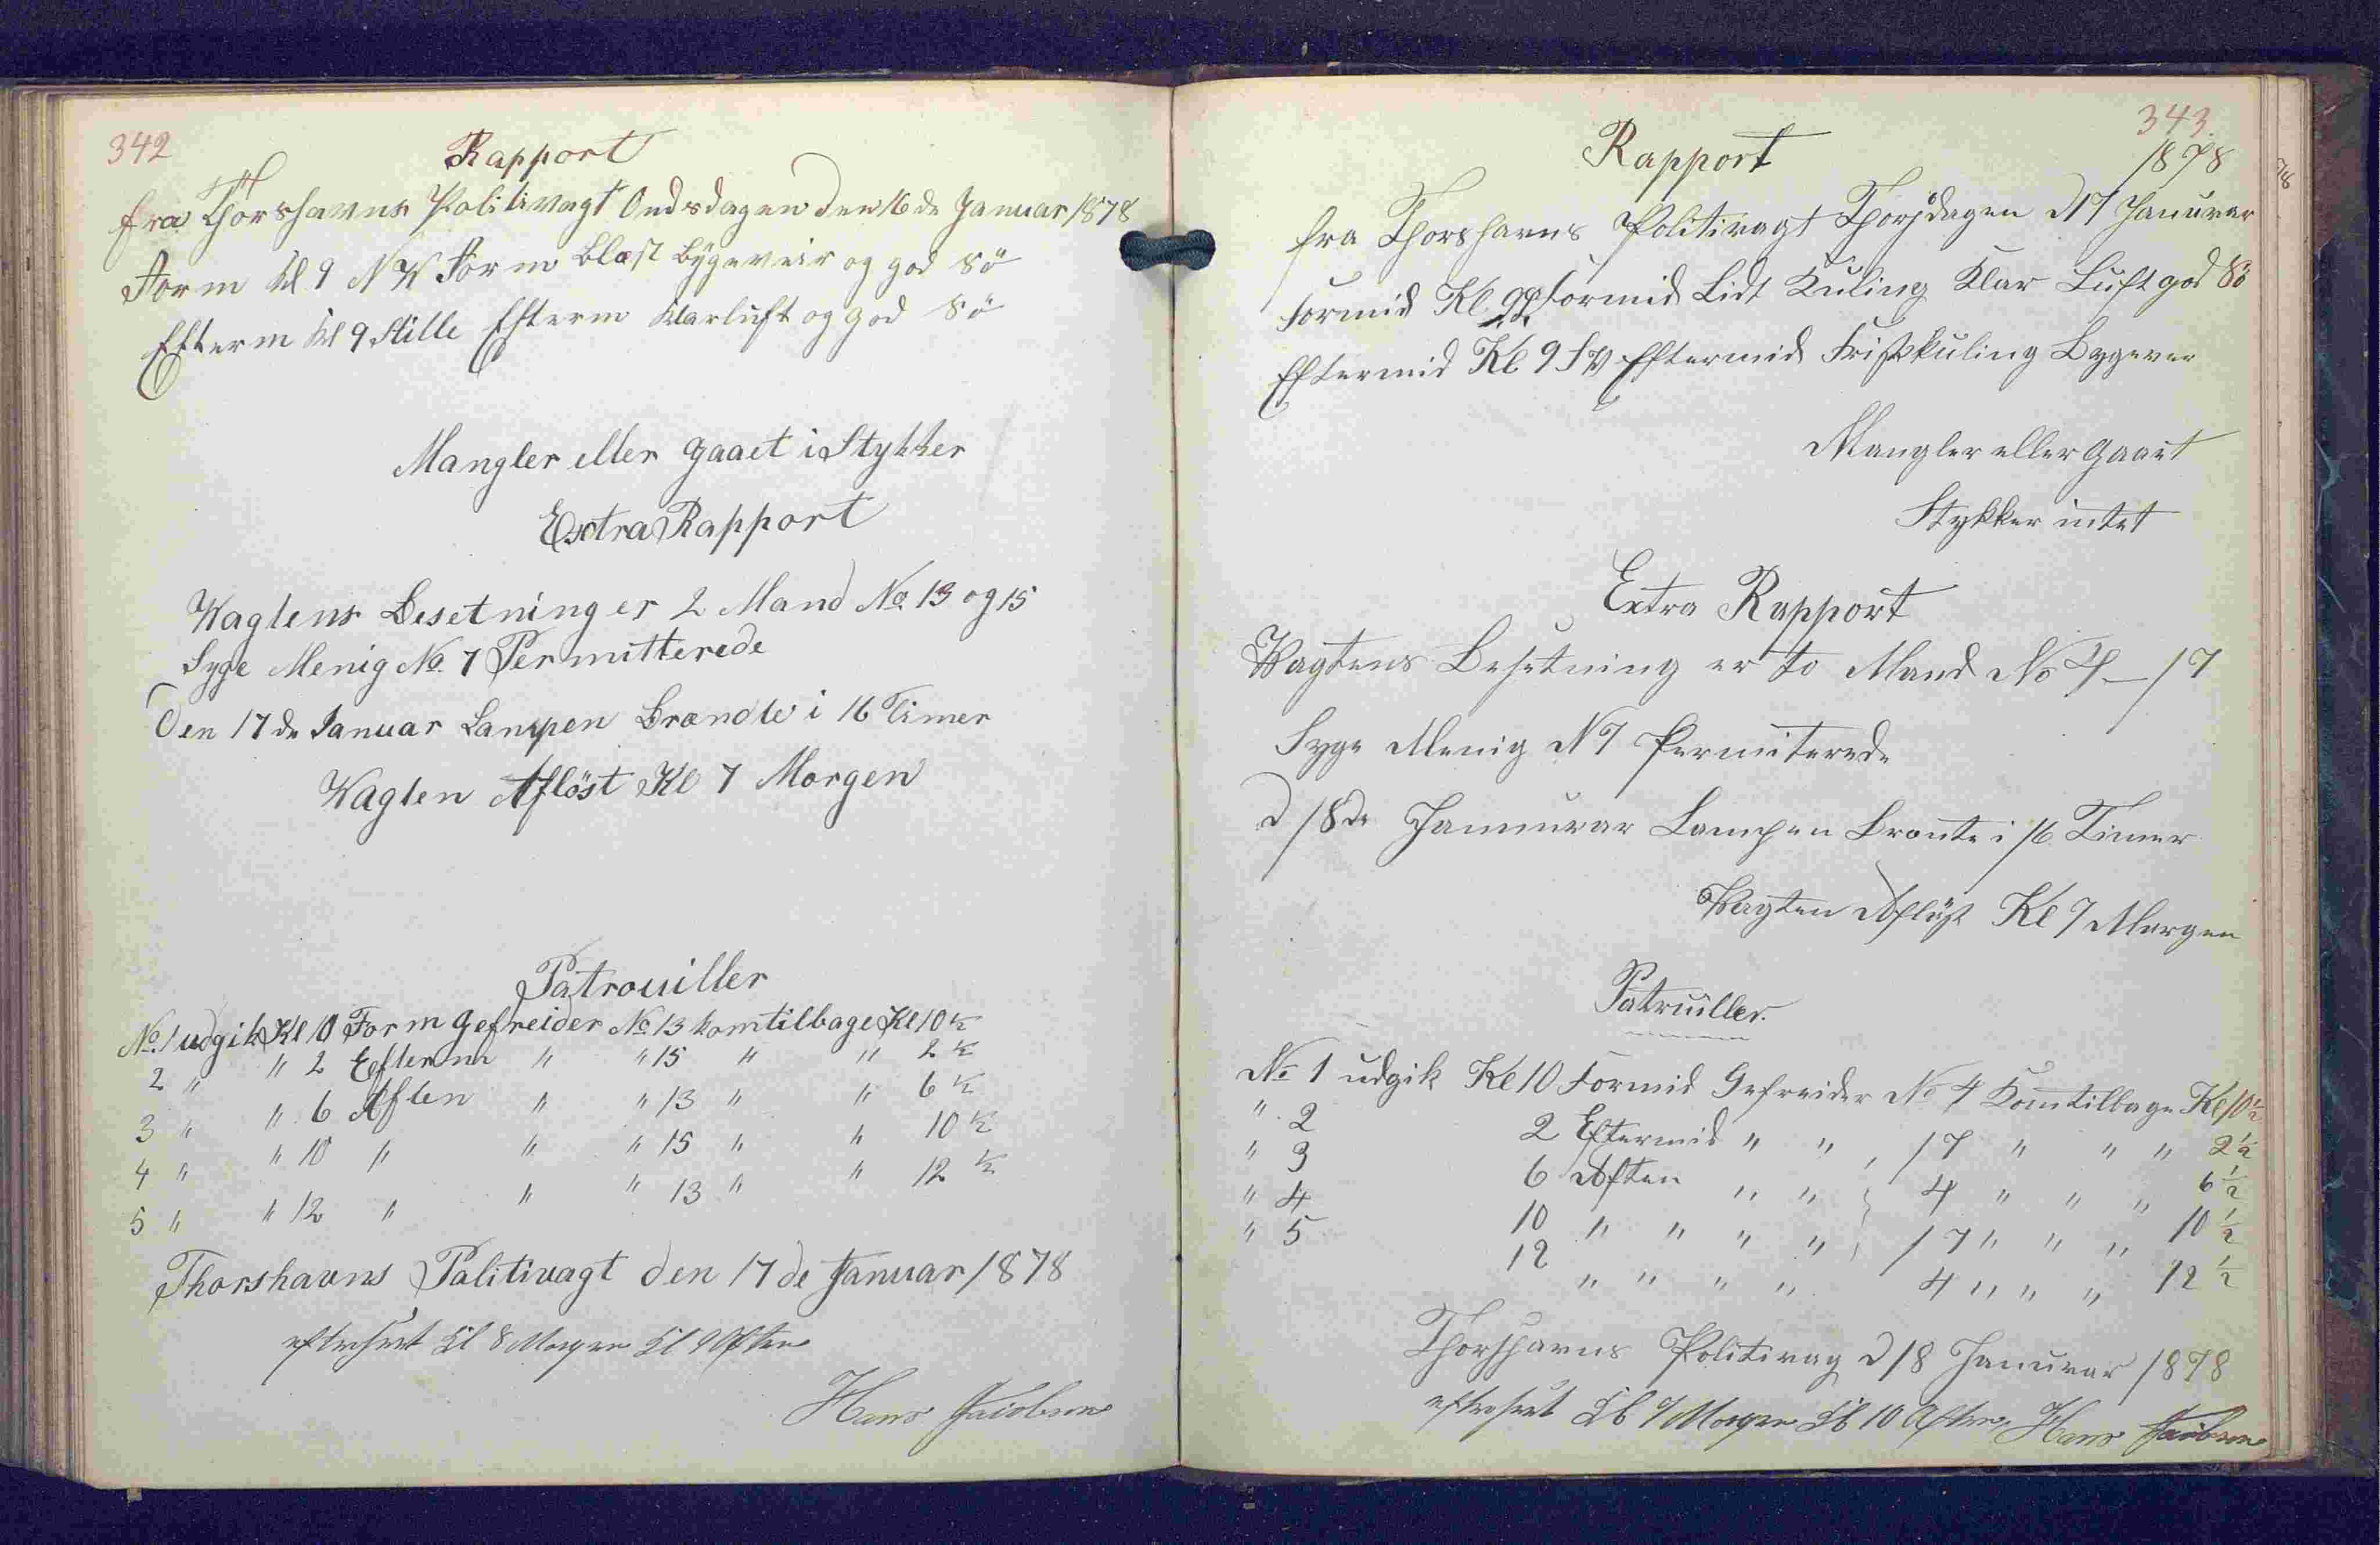 342
Rapport
fra Thorshavns Politivagt Ondsdagen den 16de Januar 1878
Form Kl 9 NW Form blæst bygeveir og god Sö
Efterm Kl 9 Stille Efterm Klarluft og god Sö
Mangler eller gaaet i Stykker
Extra Rapport
Vagtens Besetning er 2 Mand No. 13 og 15
Syge Menig No. 7 Permitterede
Den 17de Januar Lampen Brændte i 16 Timer
Vagten Aflöst Kl 7 Morgen
Patrouiller
No. 1 udgik Kl 10 Form Gefreider No 13 kom tilbage Kl 10 ½
2 " " 2 Efterm " " 15 " " 2 ½
3 " " 6 Aften " " 13 " " 6 ½
4 " " 10 " " " 15 " " 10 ½
5 " " 12 " " " 13 " " 12 ½
Thorshavns Politivagt den 17de Januar 1878
efterseet Kl 8 Morgen Kl 9 Aften
Hans Jacobsen
343.
Rapport
1878
fra Thorshavns Politivagt Thorsdagen d 17 Januar
Formid Kl 9 Formid Lidt Kuling Klar Luft god Sö
Eftermid Kl 9 SW Eftermid Friskkuling Bygever
Mangler eller gaaet
Stykker intet
Extra Rapport
Vagtens Besetning er to Mand No 4 – 17
Syge Menig N 7 Permiterede
d 18de Januuar Lampen Brænte i 16 Timer
Vagten Aflöst Kl 7 Morgen
Patruiller.
No 1 udgik Kl 10 Formid Gefreider No 4 Kom tilbage Kl 10 ½
" 2 2 Eftermid " " , 17 " " " 2 ½
" 3 6 Aften " " 4 " " " 6 ½
" 4 10 " " " " 17 " " " 10 ½
" 5 12 " " " " 4 " " " 12 ½
Thorshavns Politivag d 18 Januar 1878
efterseet Kl 7 Morgen Kl 10 Aften Hans Jacobsen
78